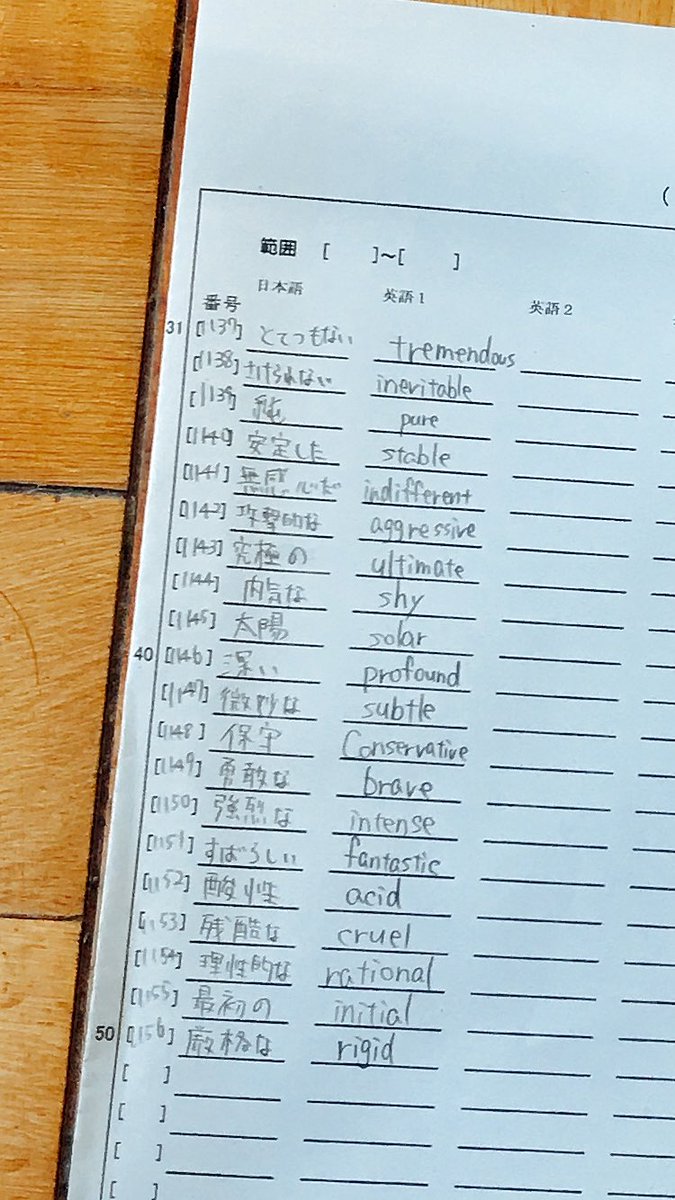 (
範囲 [ ]~[ ]
番号 日本語 英語1 英語2
31 [1137] とてつもない tremendous
[1138] さけられない inevitable
[1139] 純 pure
[1140] 安定した stable
[1141] 無関心だ indifferent
[1142] 攻撃的な aggressive
[1143] 究極の ultimate
[1144] 内気な shy
[1145] 太陽 solar
40 [1146] 深い profound
[1147] 微妙な subtle
[1148] 保守 Conservative
[1149] 勇敢な brave
[1150] 強烈な intense
[1151] すばらしい fantastic
[1152] 酸性 acid
[1153] 残酷な cruel
[1154] 理性的な rational
[1155] 最初の initial
50 [1156] 厳格な rigid
[ ]
[ ]
[ ]
[ ]